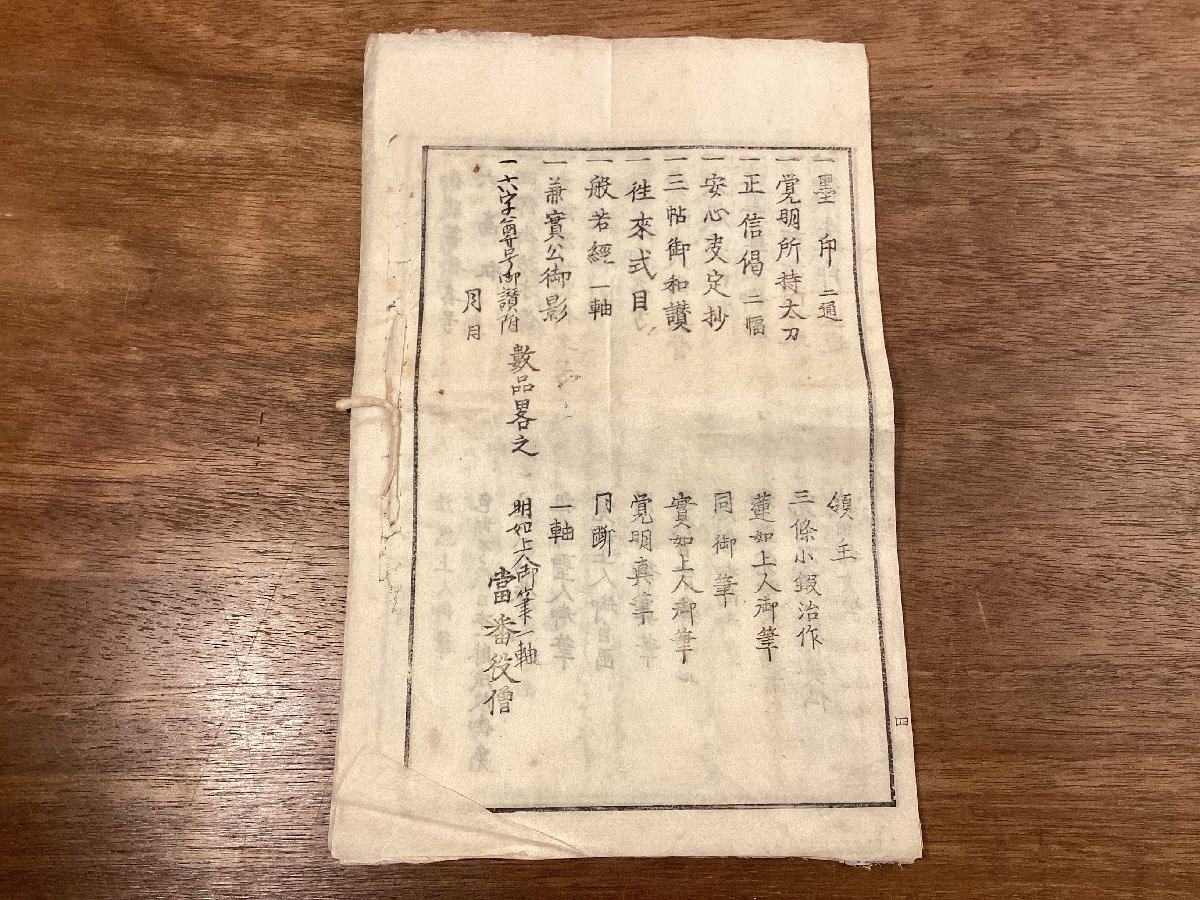 一墨印二通 領主
一覚明所持太刀 三條小鍛治作
一正信偈二幅 蓮如上人御筆
一安心决定抄 同御筆
一三帖御和讃 實如上人御筆
一徃來式目 覚明真筆
一般若經一軸 同断
一兼實公御影 一軸
一六字尊号御讃附 明如上人御筆一軸
數品畧之
月日 當番役僧
四